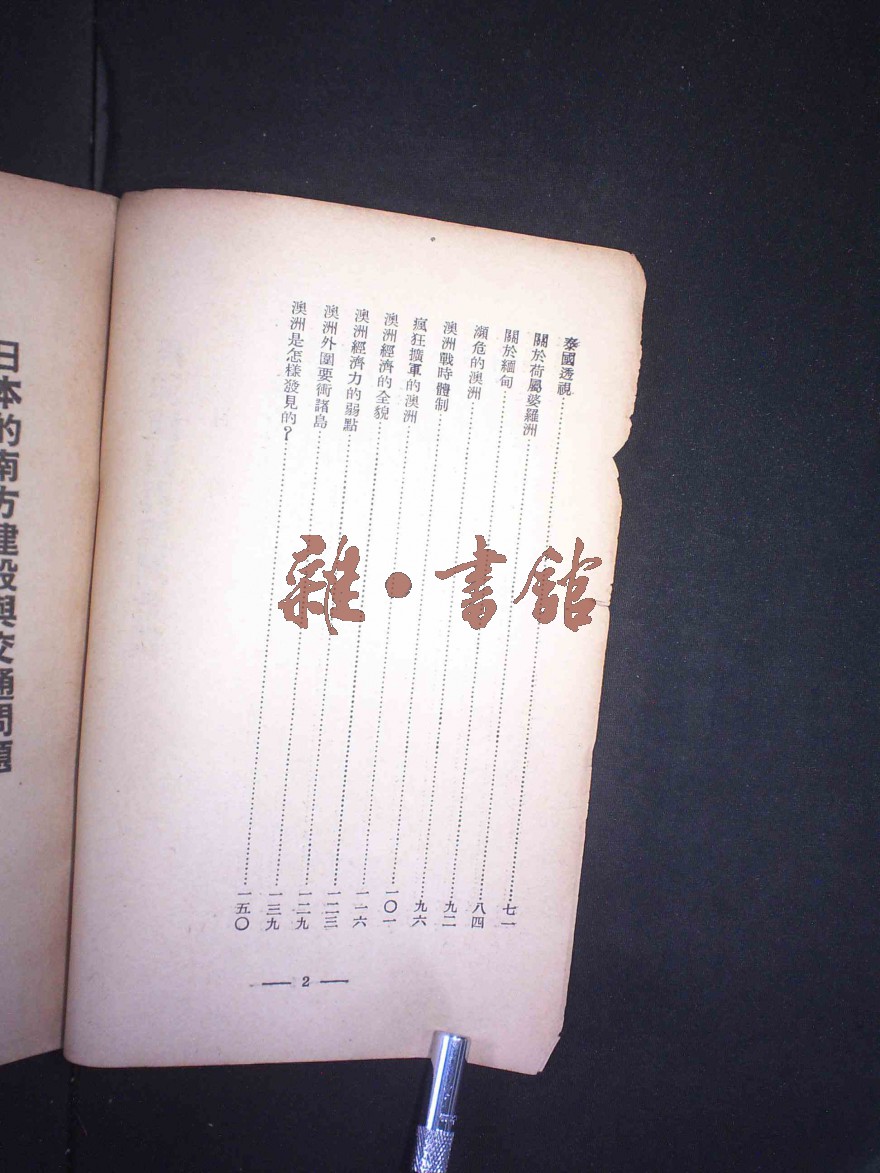 泰國透視……七一
關於荷屬婆羅洲……八四
關於緬甸……九二
瀕危的澳洲……九六
澳洲戰時體制……一〇一
瘋狂擴軍的澳洲……一一六
澳洲經濟的全貌……一二三
澳洲經濟力的弱點……一二九
澳洲外圍要衝諸島……一三九
澳洲是怎樣發見的?……一五〇
— 2 —
日本的南方建設與交通問題
雜·書館